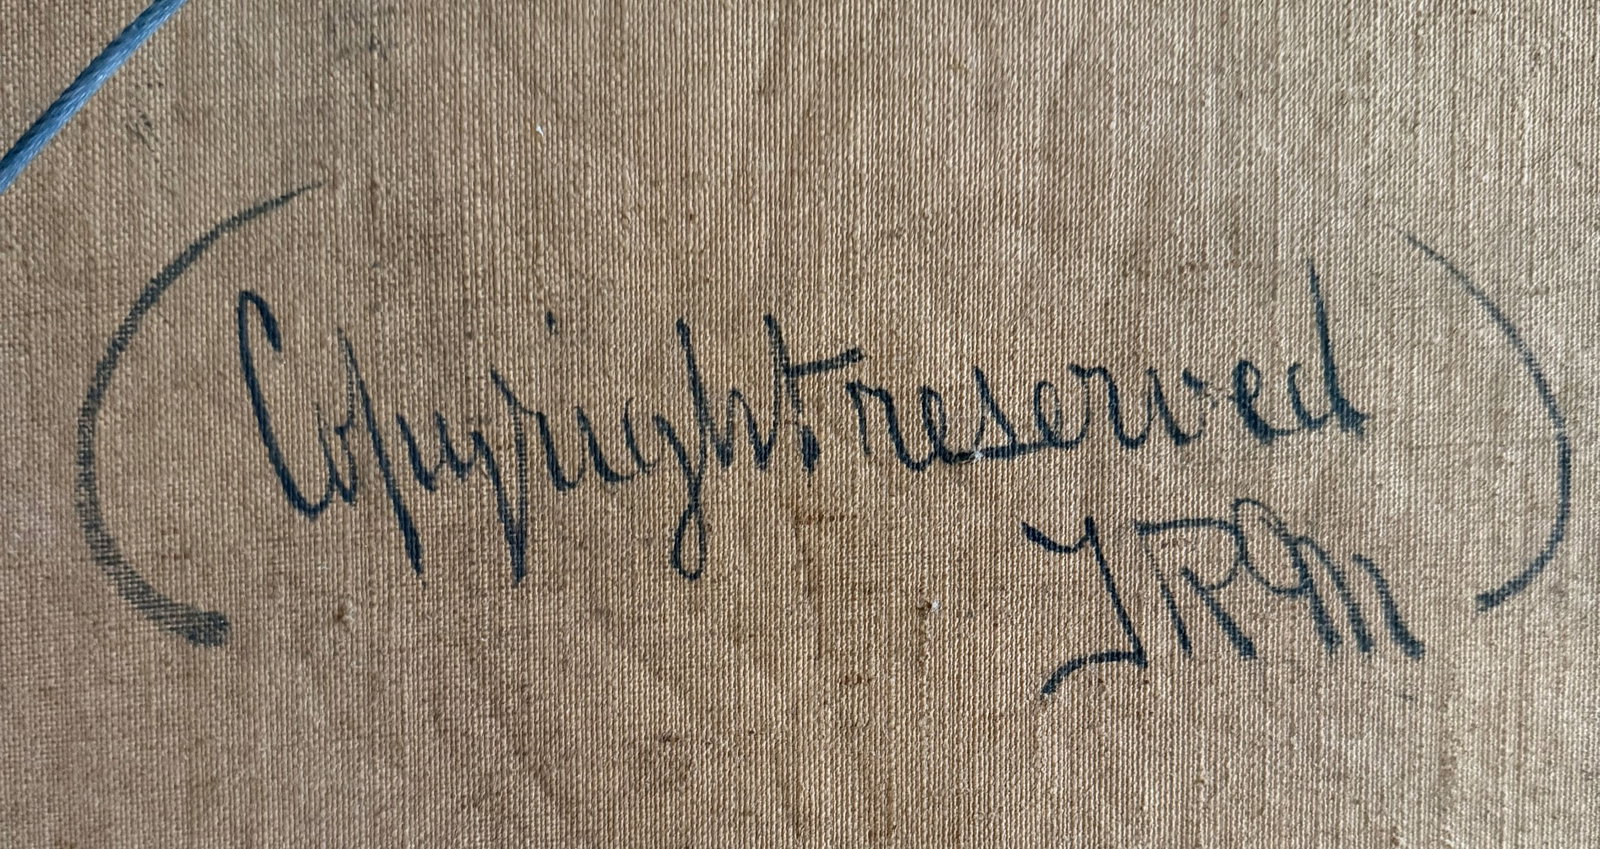 (Copyright reserved
JRM)